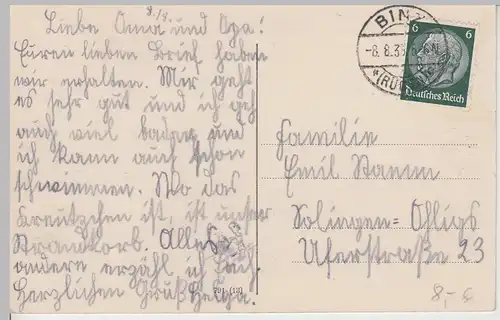 8./8.
Liebe Oma und Opa!
Euren lieben Brief haben
wir erhalten. Mir geht
es sehr gut und ich geh
auch viel baden und
ich kann auch schon
schwimmen. Wo das
Kreutzchen ist, ist unser
Strandkorb. Alles
andere erzähl ich Euch.
Herzlichen Gruß Helga.
701 (13)
BINZ
-8.8.3
(RÜ
6 6
Deutsches Reich
Familie
Emil Stamm
Solingen=Ohligs
Uferstraße 23
8,- €